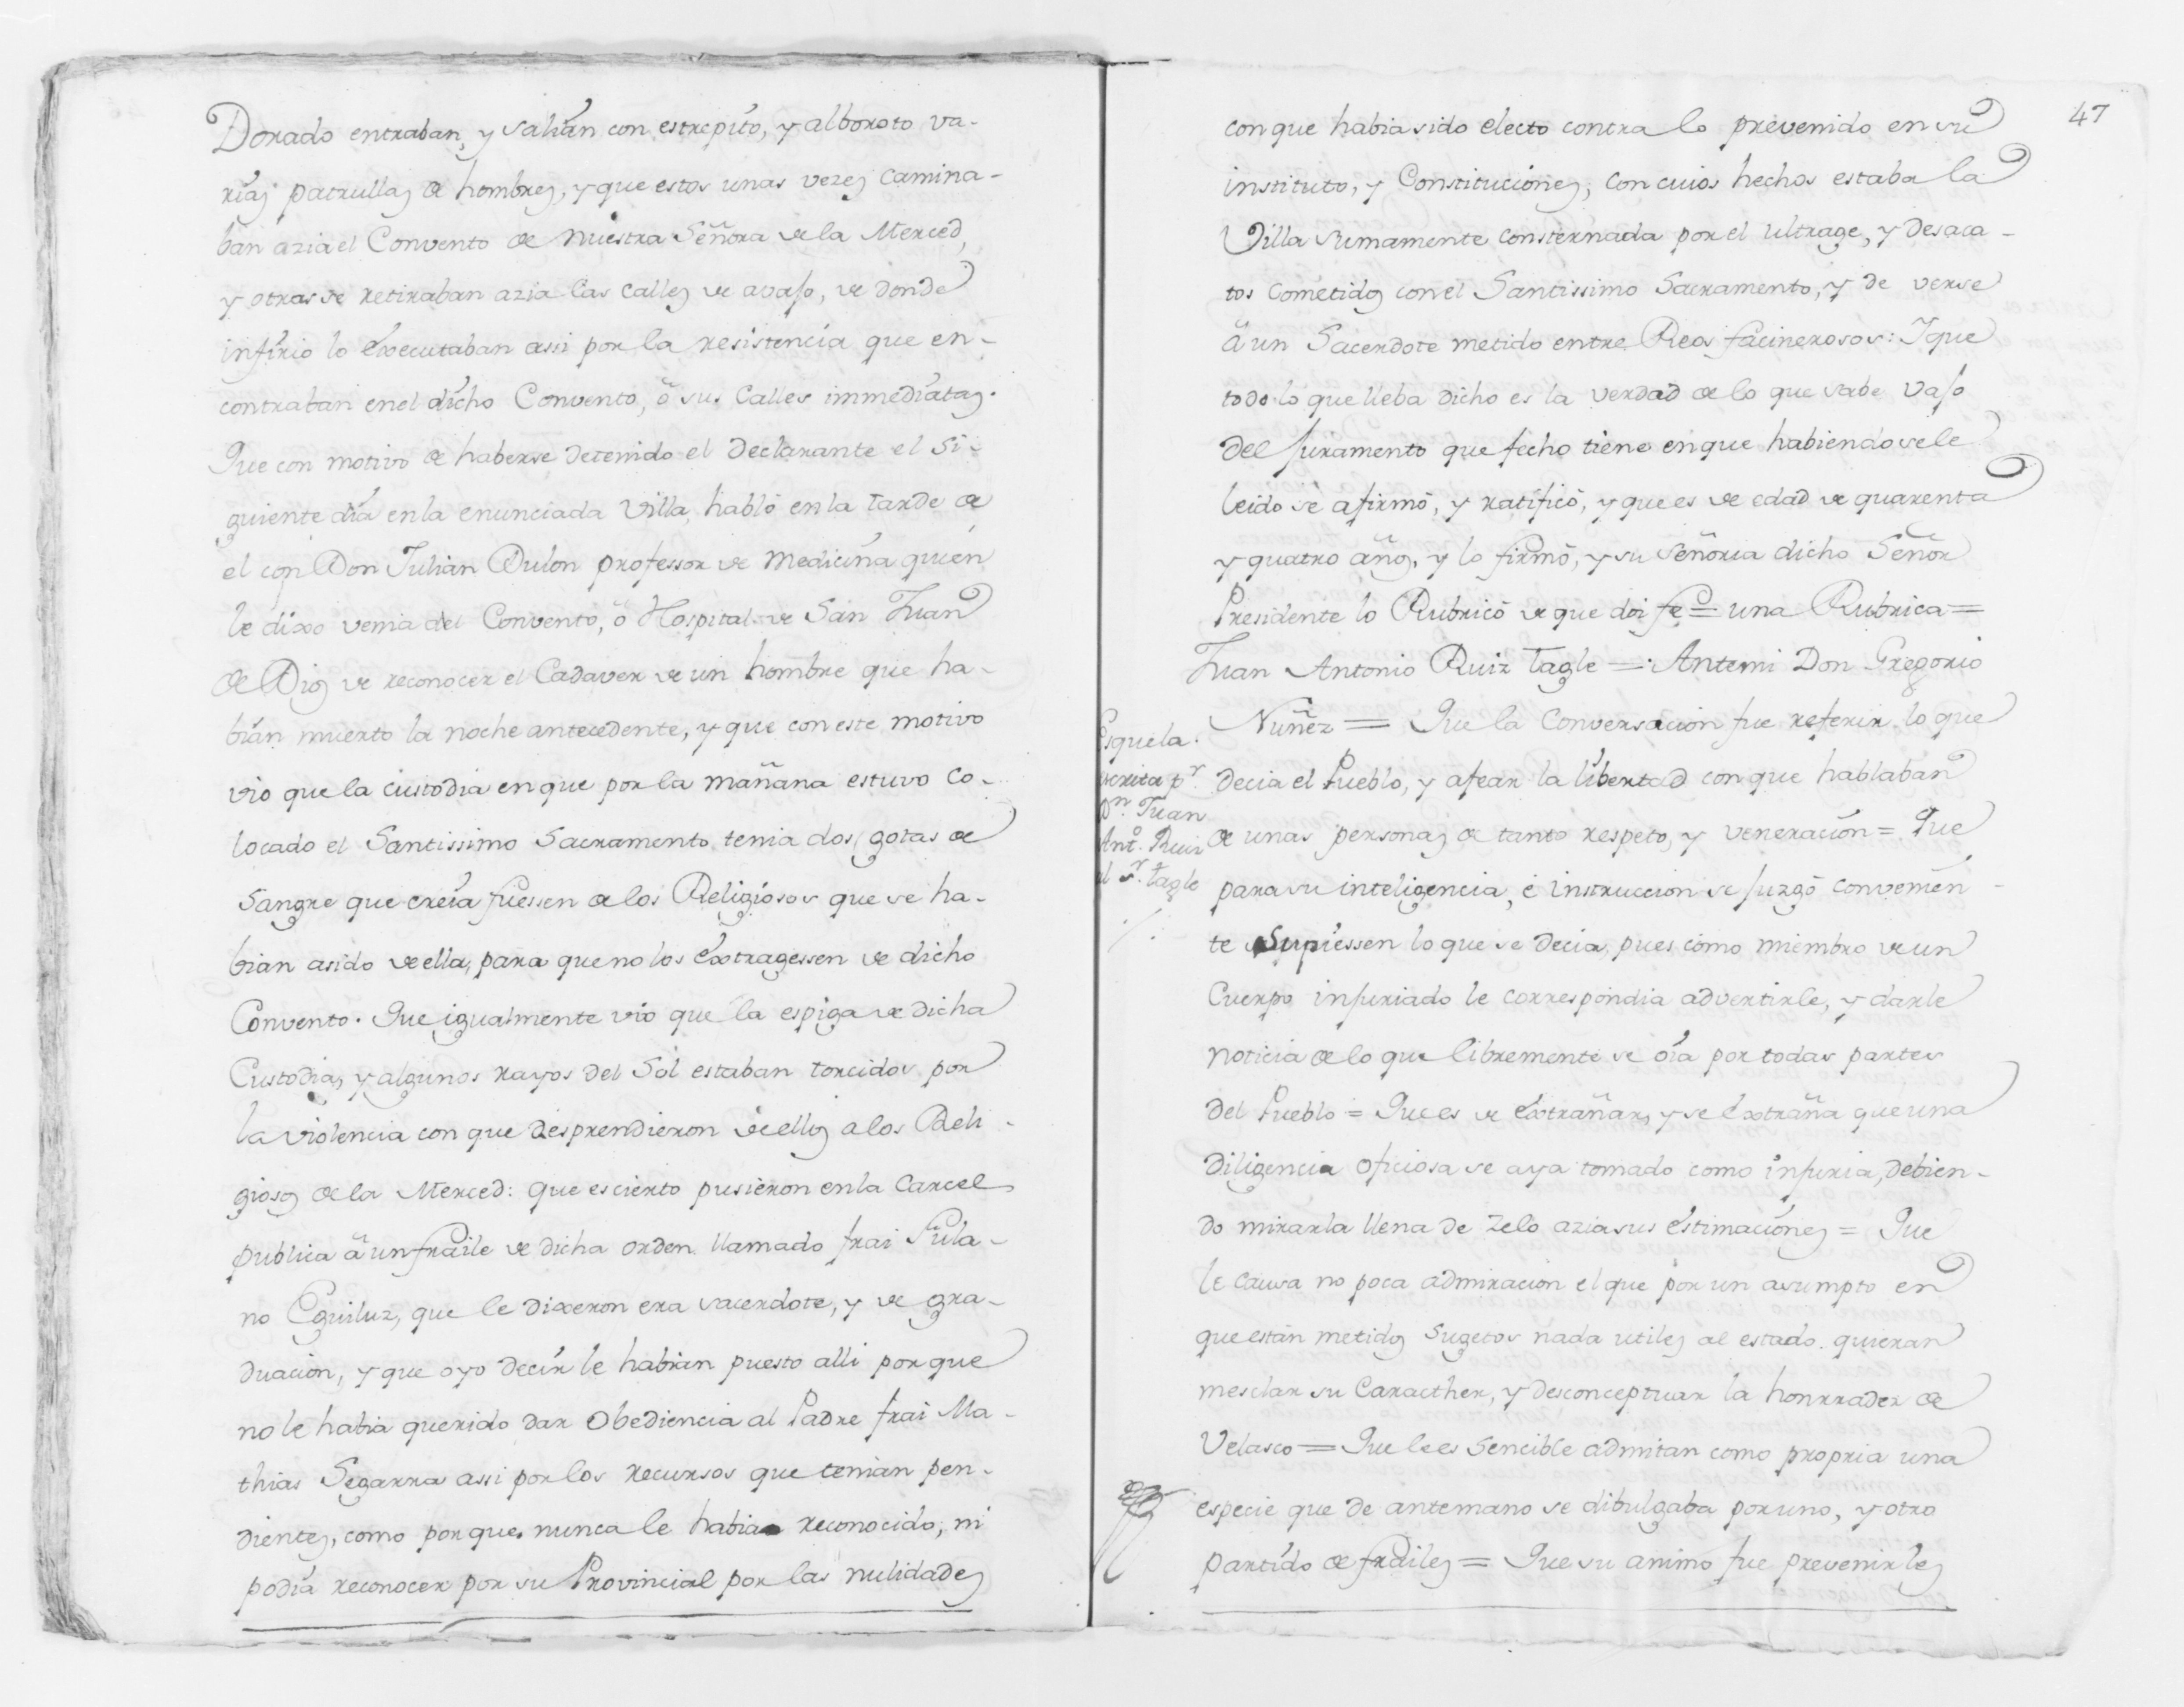 Dorado entraban, y salian con estrepito, y alboroto va-
rias patrullas de hombres, y que estos unas vezes camina-
ban azia el Convento de Nuestra Señora de la Merced,
y otras se retiraban azia las calles de avajo, de donde
infirio lo executaban assi por la resistencia que en-
contraban en el dicho Convento, ô sus Calles immediatas.
Que con motivo de haberse detenido el Declarante el si-
guiente dia en la enunciada Villa, habló en la tarde de
el con Don Julian Dulon professor de Medicina quien
le dixo venia del Convento, ô Hospital de San Juan
de Dios de reconocer el Cadaver de un hombre que ha-
bian muerto la noche antecedente, y que con este motivo
vio que la custodia en que por la mañana estuvo co-
locado el Santissimo Sacramento tenia dos gotas de
sangre que creia fuessen de los Religiosos que se ha-
bian asido de ella, para que no los extragessen de dicho
Convento. Que igualmente vio que la espiga de dicha
Custodia, y algunos rayos del Sol estaban torcidos por
la violencia con que desprendieron de ellos a los Reli-
giosos de la Merced: que es cierto pusieron en la Carcel
publica â un fraile de dicha orden llamado frai Fula-
no Eguiluz, que le dixeron era sacerdote, y de gra-
duacion, y que oyo decir le habian puesto alli porque
no le habia querido dar Obediencia al Padre frai Ma-
thias Segarra assi por los recursos que tenian pen-
dientes, como porque nunca le habia reconocido, ni
podia reconocer por su Provincial por las nulidades
47
con que habia sido electo contra lo prevenido en su
instituto, y Constituciones, con cuios hechos estaba la
Villa sumamente consternada por el ultrage, y desaca-
tos cometidos con el Santissimo Sacramento, y de verse
â un Sacerdote metido entre Reos facinerosos: Y que
todo lo que lleba dicho es la verdad de lo que sabe vajo
del juramento que fecho tiene en que habiendosele
leido se afirmó, y ratificó, y que es de edad de quarenta
y quatro años, y lo firmó, y su Señoria dicho Señor
Presidente lo Rubricó de que doi fe = una Rubrica =
Juan Antonio Ruiz Tagle = Antemi Don Gregorio
Nuñez = Que la conversacion fue referir lo que
decia el Pueblo, y afear la libertad con que hablaban
de unas personas de tanto respeto, y veneracion = Que
para su inteligencia, é instruccion se juzgó convenien-
te supiessen lo que se decia, pues como miembro de un
Cuerpo injuriado le correspondia advertirle, y darle
noticia de lo que libremente se oia por todas partes
del Pueblo = Que es de extrañar, y se extraña que una
diligencia oficiosa se aya tomado como injuria, debien-
do mirarla llena de zelo azia sus estimaciones = Que
le causa no poca admiracion el que por un asumpto en
que están metidos sugetos nada utiles al estado, quieran
mesclar su Caracther, y desconceptuar la honrradez de
Velasco = Que le es sencible admitan como propria una
especie que de antemano se dibulgaba por uno, y otro
partido de frailes = Que su animo fue prevenirles
Esquela
escrita pr.
Dn. Juan
Anto. Ruiz
al Sr. Tagle